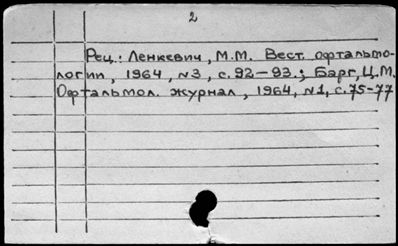 2
Рец.: Ленкевич, М.М. Вест. офтальмо-
логии, 1964, №3, с.92-93.; Барг, Ц.М.
Офтальмол. журнал, 1964, №1, с.75-77